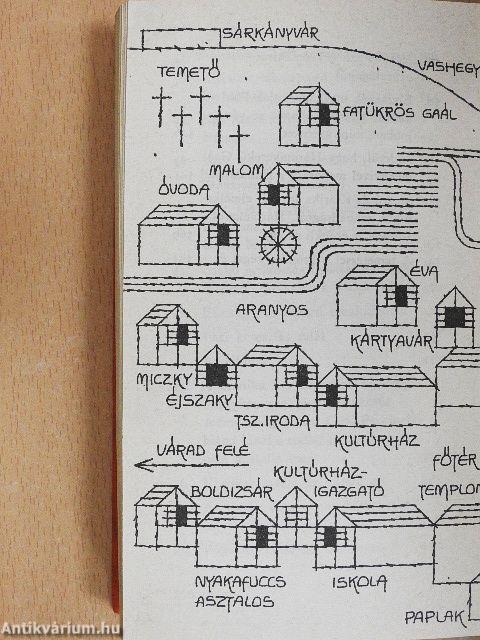 SÁRKÁNYVÁR
VASHEGY
TEMETŐ
FATÜKRÖS GAÁL
MALOM
ÓVODA
ÉVA
ARANYOS
KÁRTYAVÁR
MICZKY
ÉJSZAKY
TSZ.IRODA
KULTÚRHÁZ
VÁRAD FELÉ
FŐTÉR
KULTÚRHÁZ-
IGAZGATÓ
BOLDIZSÁR
TEMPLOM
NYAKAFUCCS
ASZTALOS
ISKOLA
PAPLAK
Antikvárium.hu